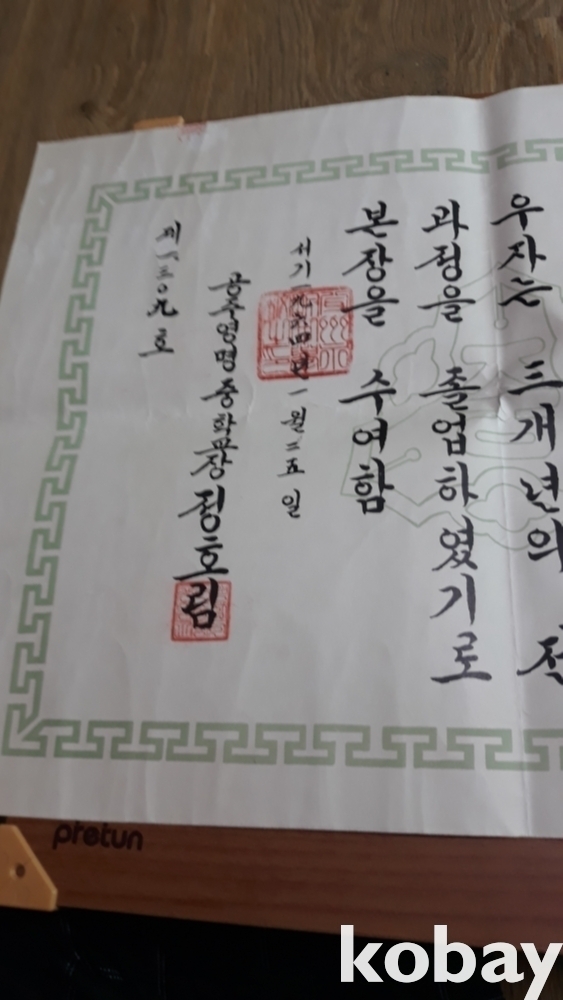 우자는 삼개년의 전
과정을 졸업하였기로
본장을 수여함
서기一九六四년一월二五일
공주영명중학교장 정호림
제一三○九호
pretun
kobay